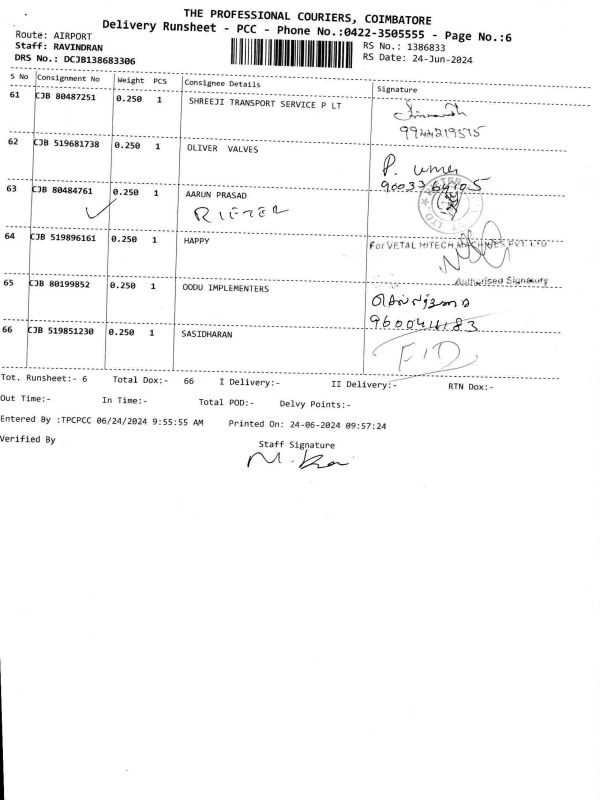 THE PROFESSIONAL COURIERS, COIMBATORE
Delivery Runsheet - PCC - Phone No.:0422-3505555 - Page No.:6
Route: AIRPORT
Staff: RAVINDRAN RS No.: 1386833
DRS No.: DCJB138683306 RS Date: 24-Jun-2024
S No Consignment No Weight PCS Consignee Details Signature
61 CJB 80487251 0.250 1 SHREEJI TRANSPORT SERVICE P LT
9944219515
62 CJB 519681738 0.250 1 OLIVER VALVES
P. umer
63 CJB 80484761 0.250 1 AARUN PRASAD
RIETER
64 CJB 519896161 0.250 1 HAPPY
For VETAL HITECH MACHINES PVT. LTD
Authorised Signatory
65 CJB 80199852 0.250 1 OODU IMPLEMENTERS
9600411183
66 CJB 519851230 0.250 1 SASIDHARAN
Tot. Runsheet:- 6 Total Dox:- 66 I Delivery:- II Delivery:- RTN Dox:-
Out Time:- In Time:- Total POD:- Delvy Points:-
Entered By :TPCPCC 06/24/2024 9:55:55 AM Printed On: 24-06-2024 09:57:24
Verified By Staff Signature